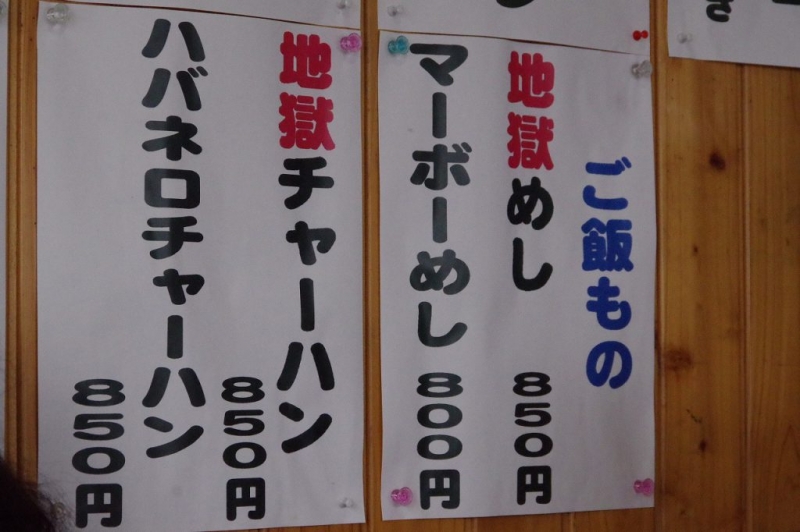 ご飯もの
地獄めし 850円
マーボーめし 800円
地獄チャーハン 850円
ハバネロチャーハン 850円